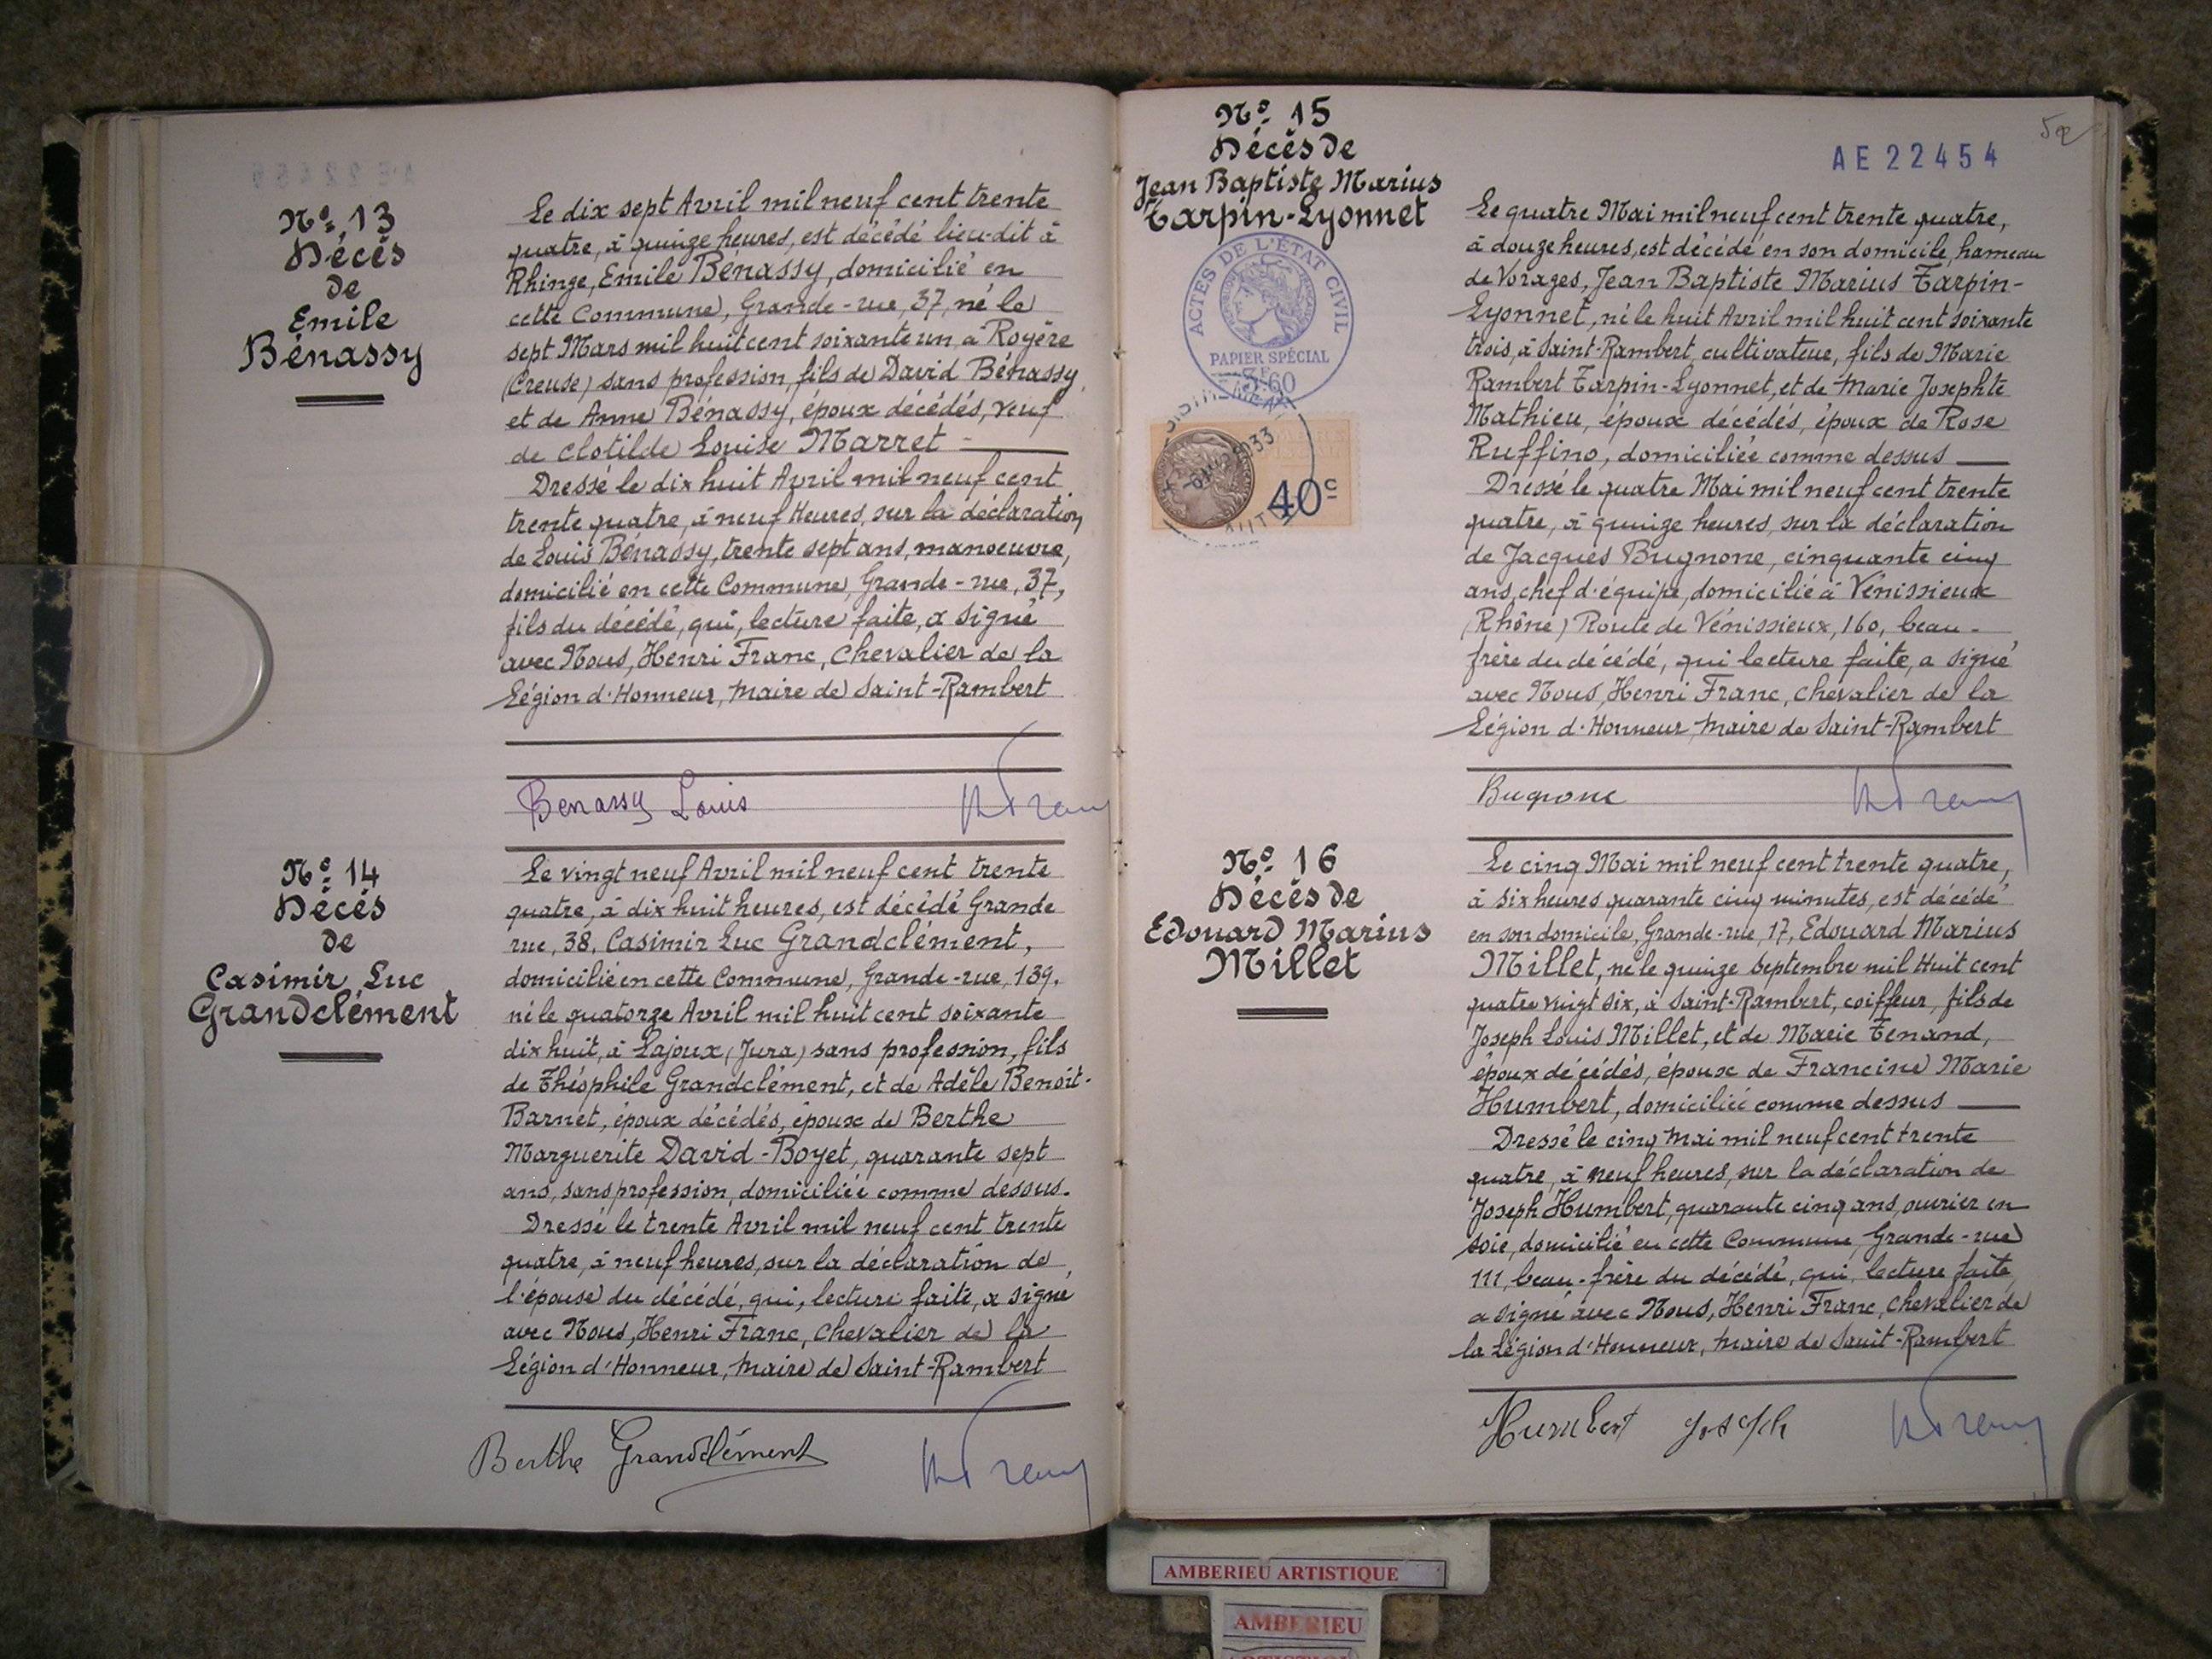 N° 13
Décès
de
Emile
Bénassy
Le dix sept Avril mil neuf cent trente
quatre, à quinze heures, est décédé lieu-dit à
Rhinge, Emile Bénassy, domicilié en
cette Commune, Grande-rue, 37, né le
sept Mars mil huit cent soixante un, à Royère
(Creuse) sans profession, fils de David Bénassy,
et de Anne Bénassy, époux décédés, veuf
de Clotilde Louise Marret
Dressé le dix huit Avril mil neuf cent
trente quatre, à neuf Heures, sur la déclaration
de Louis Bénassy, trente sept ans, manoeuvre,
domicilié en cette Commune, Grande-rue, 37,
fils du décédé, qui, lecture faite, a signé
avec Nous, Henri Franc, Chevalier de la
Légion d'Honneur, Maire de Saint-Rambert
Benassy Louis
N° 14
Décès
de
Casimir Luc
Grandclément
Le vingt neuf Avril mil neuf cent trente
quatre, à dix huit heures, est décédé Grande
rue, 38, Casimir Luc Grandclément,
domicilié en cette Commune, Grande-rue, 139.
né le quatorze Avril mil huit cent soixante
dix huit, à Lajoux (Jura) sans profession, fils
de Théophile Grandclément, et de Adèle Benoit-
Barnet, époux décédés, époux de Berthe
Marguerite David-Boyet, quarante sept
ans, sans profession, domiciliée comme dessus.
Dressé le trente Avril mil neuf cent trente
quatre, à neuf heures, sur la déclaration de
l'épouse du décédé, qui, lecture faite, a signé
avec Nous, Henri Franc, Chevalier de la
Légion d'Honneur, Maire de Saint-Rambert
Berthe Grandclément
N° 15
Décès de
Jean Baptiste Marius
Tarpin-Lyonnet
ACTES DE L'ÉTAT CIVIL
PAPIER SPÉCIAL
3F60
1933
40c
AE 22454
52
Le quatre Mai mil neuf cent trente quatre,
à douze heures, est décédé en son domicile, hameau
de Vorages, Jean Baptiste Marius Tarpin-
Lyonnet, né le huit Avril mil huit cent soixante
trois, à Saint-Rambert, cultivateur, fils de Marie
Rambert Tarpin-Lyonnet, et de Marie Josephte
Mathieu, époux décédés, époux de Rose
Ruffino, domiciliée comme dessus
Dressé le quatre Mai mil neuf cent trente
quatre, à quinze heures, sur la déclaration
de Jacques Bugnone, cinquante cinq
ans, chef d'équipe, domicilié à Vénissieux
(Rhône) Route de Vénissieux, 160, beau-
frère du décédé, qui lecture faite, a signé
avec Nous, Henri Franc, Chevalier de la
Légion d'Honneur Maire de Saint-Rambert
Bugnone
N° 16
Décès de
Edouard Marius
Millet
Le cinq Mai mil neuf cent trente quatre,
à six heures quarante cinq minutes, est décédé
en son domicile, Grande-rue, 17, Edouard Marius
Millet, né le quinze Septembre mil Huit cent
quatre vingt six, à Saint-Rambert, coiffeur, fils de
Joseph Louis Millet, et de Marie Tenand,
époux décédés, époux de Francine Marie
Humbert, domiciliée comme dessus
Dressé le cinq Mai mil neuf cent trente
quatre, à neuf heures, sur la déclaration de
Joseph Humbert, quarante cinq ans, ouvrier en
soie, domicilié en cette Commune, Grande-rue
111, beau-frère du décédé, qui, lecture faite,
a signé avec Nous, Henri Franc, Chevalier de
la Légion d'Honneur, Maire de Saint-Rambert
Humbert Joseph
AMBERIEU ARTISTIQUE
AMBERIEU